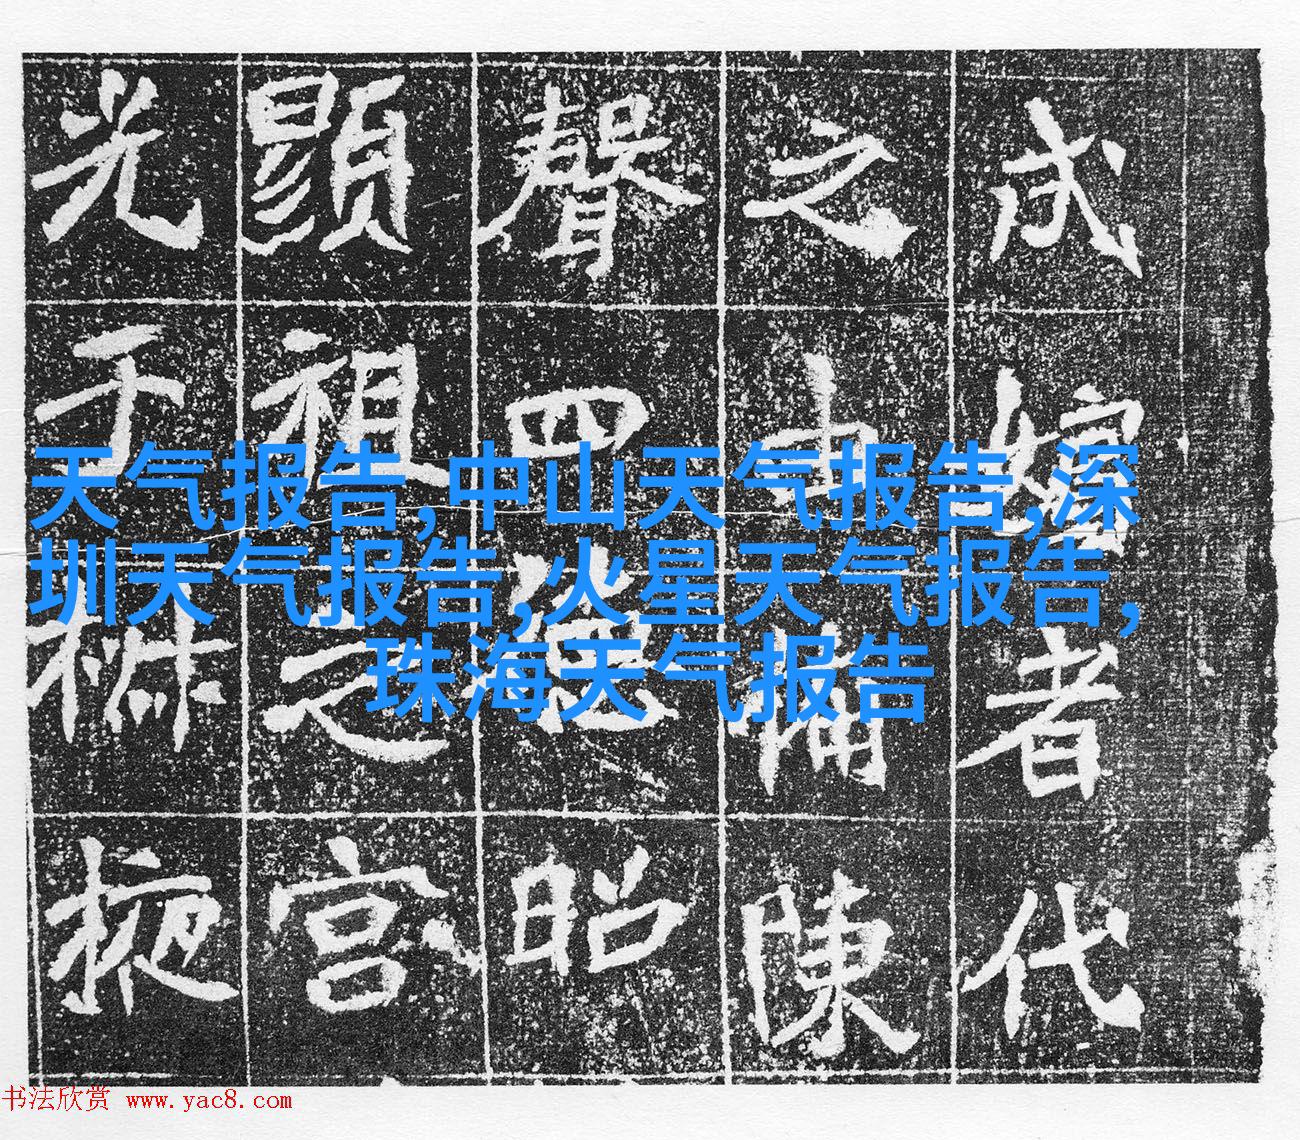 者代
之備陳
聲四德昭
顯祖之宮
光于椒掖
天气报告,中山天气报告,深
圳天气报告,火星天气报告,
珠海天气报告
书法欣赏 www.yac8.com